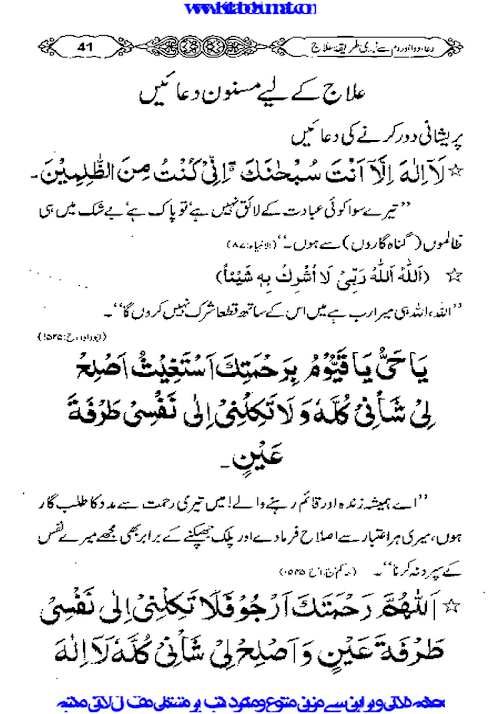 www.KitaboSunnat.com
41
دعا، دوا اور دم سے نبوی طریقۂ علاج
علاج کے لیے مسنون دعائیں
پریشانی دور کرنے کی دعائیں
☆ لَآ اِلٰهَ اِلَّآ اَنْتَ سُبْحٰنَكَ اِنِّیْ كُنْتُ مِنَ الظّٰلِمِیْنَ۔
’’تیرے سوا کوئی عبادت کے لائق نہیں ہے‘ تو پاک ہے‘ بے شک میں ہی
ظالموں (گناہ گاروں) سے ہوں۔‘‘ (الانبیاء: ۸۷)
☆ (اَللّٰهُ اَللّٰهُ رَبِّیْ لَا اُشْرِكُ بِهٖ شَیْئًا)
’’اللہ، اللہ ہی میرا رب ہے میں اس کے ساتھ قطعاً شرک نہیں کروں گا‘‘۔
(ابوداود، ح: ۱۵۲۵)
یَا حَیُّ یَا قَیُّوْمُ بِرَحْمَتِكَ اَسْتَغِیْثُ اَصْلِحْ
لِیْ شَاْنِیْ كُلَّهٗ وَلَا تَكِلْنِیْ اِلٰی نَفْسِیْ طَرْفَةَ
عَیْنٍ۔
’’اے ہمیشہ زندہ اور قائم رہنے والے! میں تیری رحمت سے مدد کا طلب گار
ہوں، میری ہر اعتبار سے اصلاح فرما دے اور پلک جھپکنے کے برابر بھی مجھے میرے نفس
کے سپرد نہ کرنا‘‘۔
☆ اَللّٰهُمَّ رَحْمَتَكَ اَرْجُوْ فَلَا تَكِلْنِیْ اِلٰی نَفْسِیْ
طَرْفَةَ عَیْنٍ وَاَصْلِحْ لِیْ شَاْنِیْ كُلَّهٗ لَا اِلٰهَ
محکمہ دلائل وبراہین سے مزین متنوع ومنفرد کتب پر مشتمل مفت آن لائن مکتبہ